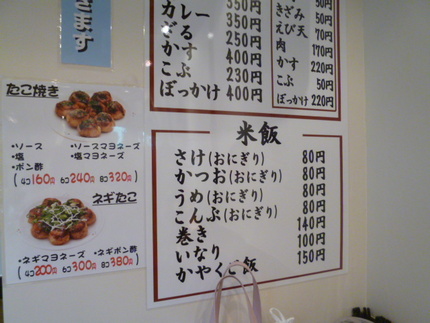 きます
カレー 350円
ざる 250円
かす 400円
こぶ 230円
ぼっかけ 400円
きざみ 50円
えび天 70円
肉 170円
かす 220円
こぶ 50円
ぼっかけ 220円
たこ焼き
・ソース ・ソースマヨネーズ
・塩 ・塩マヨネーズ
・ポン酢
(4コ160円 6コ240円 8コ320円)
ネギたこ
・ネギマヨネーズ ・ネギポン酢
(4コ200円 6コ300円 8コ380円)
米飯
さけ(おにぎり) 80円
かつお(おにぎり) 80円
うめ(おにぎり) 80円
こんぶ(おにぎり) 80円
巻き 140円
いなり 100円
かやくご飯 150円